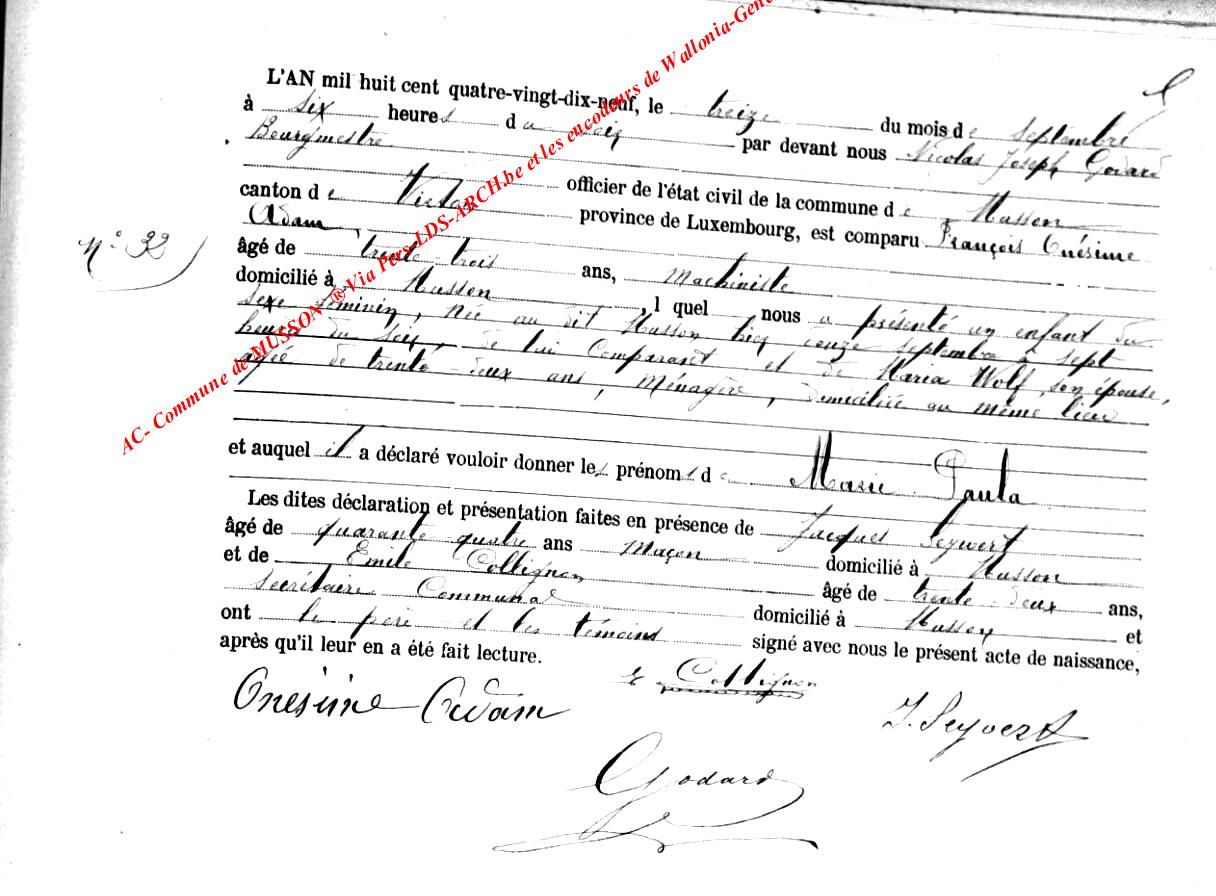 L'AN mil huit cent quatre-vingt-dix-neuf, le treize du mois de septembre
à six heures du soir par devant nous Nicolas Joseph Godard
Bourgmestre
officier de l'état civil de la commune de Musson
canton de Virton province de Luxembourg, est comparu François Onésime
Adam,
N° 32
âgé de trente trois ans, machiniste
domicilié à Musson, l quel nous a présenté un enfant du
sexe féminin, née au dit Musson, hier septembre à sept
heures du soir, de lui comparant et de Maria Wolf, son épouse,
agée de trente deux ans, ménagère, domiciliée au même lieu
et auquel il a déclaré vouloir donner les prénoms de Marie Paula
Les dites déclaration et présentation faites en présence de Jacques Seywert
âgé de quarante quatre ans maçon domicilié à Musson
et de Emile Collignon âgé de trente-deux ans,
secrétaire Communal domicilié à Musson et
ont le père et les témoins signé avec nous le présent acte de naissance,
après qu'il leur en a été fait lecture.
E Collignon
Onésime Adam
J. Seyvert
Godard
AC- Commune de MUSSON ® Via Pers-LDS-ARCH.be et les encodeurs de Wallonia-Gen